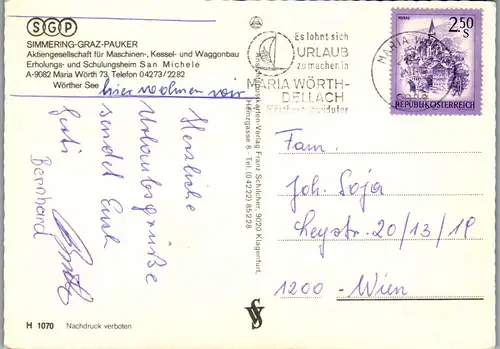 SGP
SIMMERING-GRAZ-PAUKER
Aktiengesellschaft für Maschinen-, Kessel- und Waggonbau
Erholungs- und Schulungsheim San Michele
A-9082 Maria Wörth 73, Telefon 04273/2282
Wörther See
hier wohnen wir
Herzliche
Urlaubsgrüße
sendet Euch
Bernhard
H 1070 Nachdruck verboten
Franz Schilcher, 9020 Klagenfurt,
8 - Tel. (04222) 85228
Es lohnt sich
URLAUB
zu machen in
MARIA WÖRTH-
DELLACH
MARIA
2.50
S
MURAU
REPUBLIK ÖSTERREICH
Fam.
Joh. Soja
20/13/19
1200 - Wien